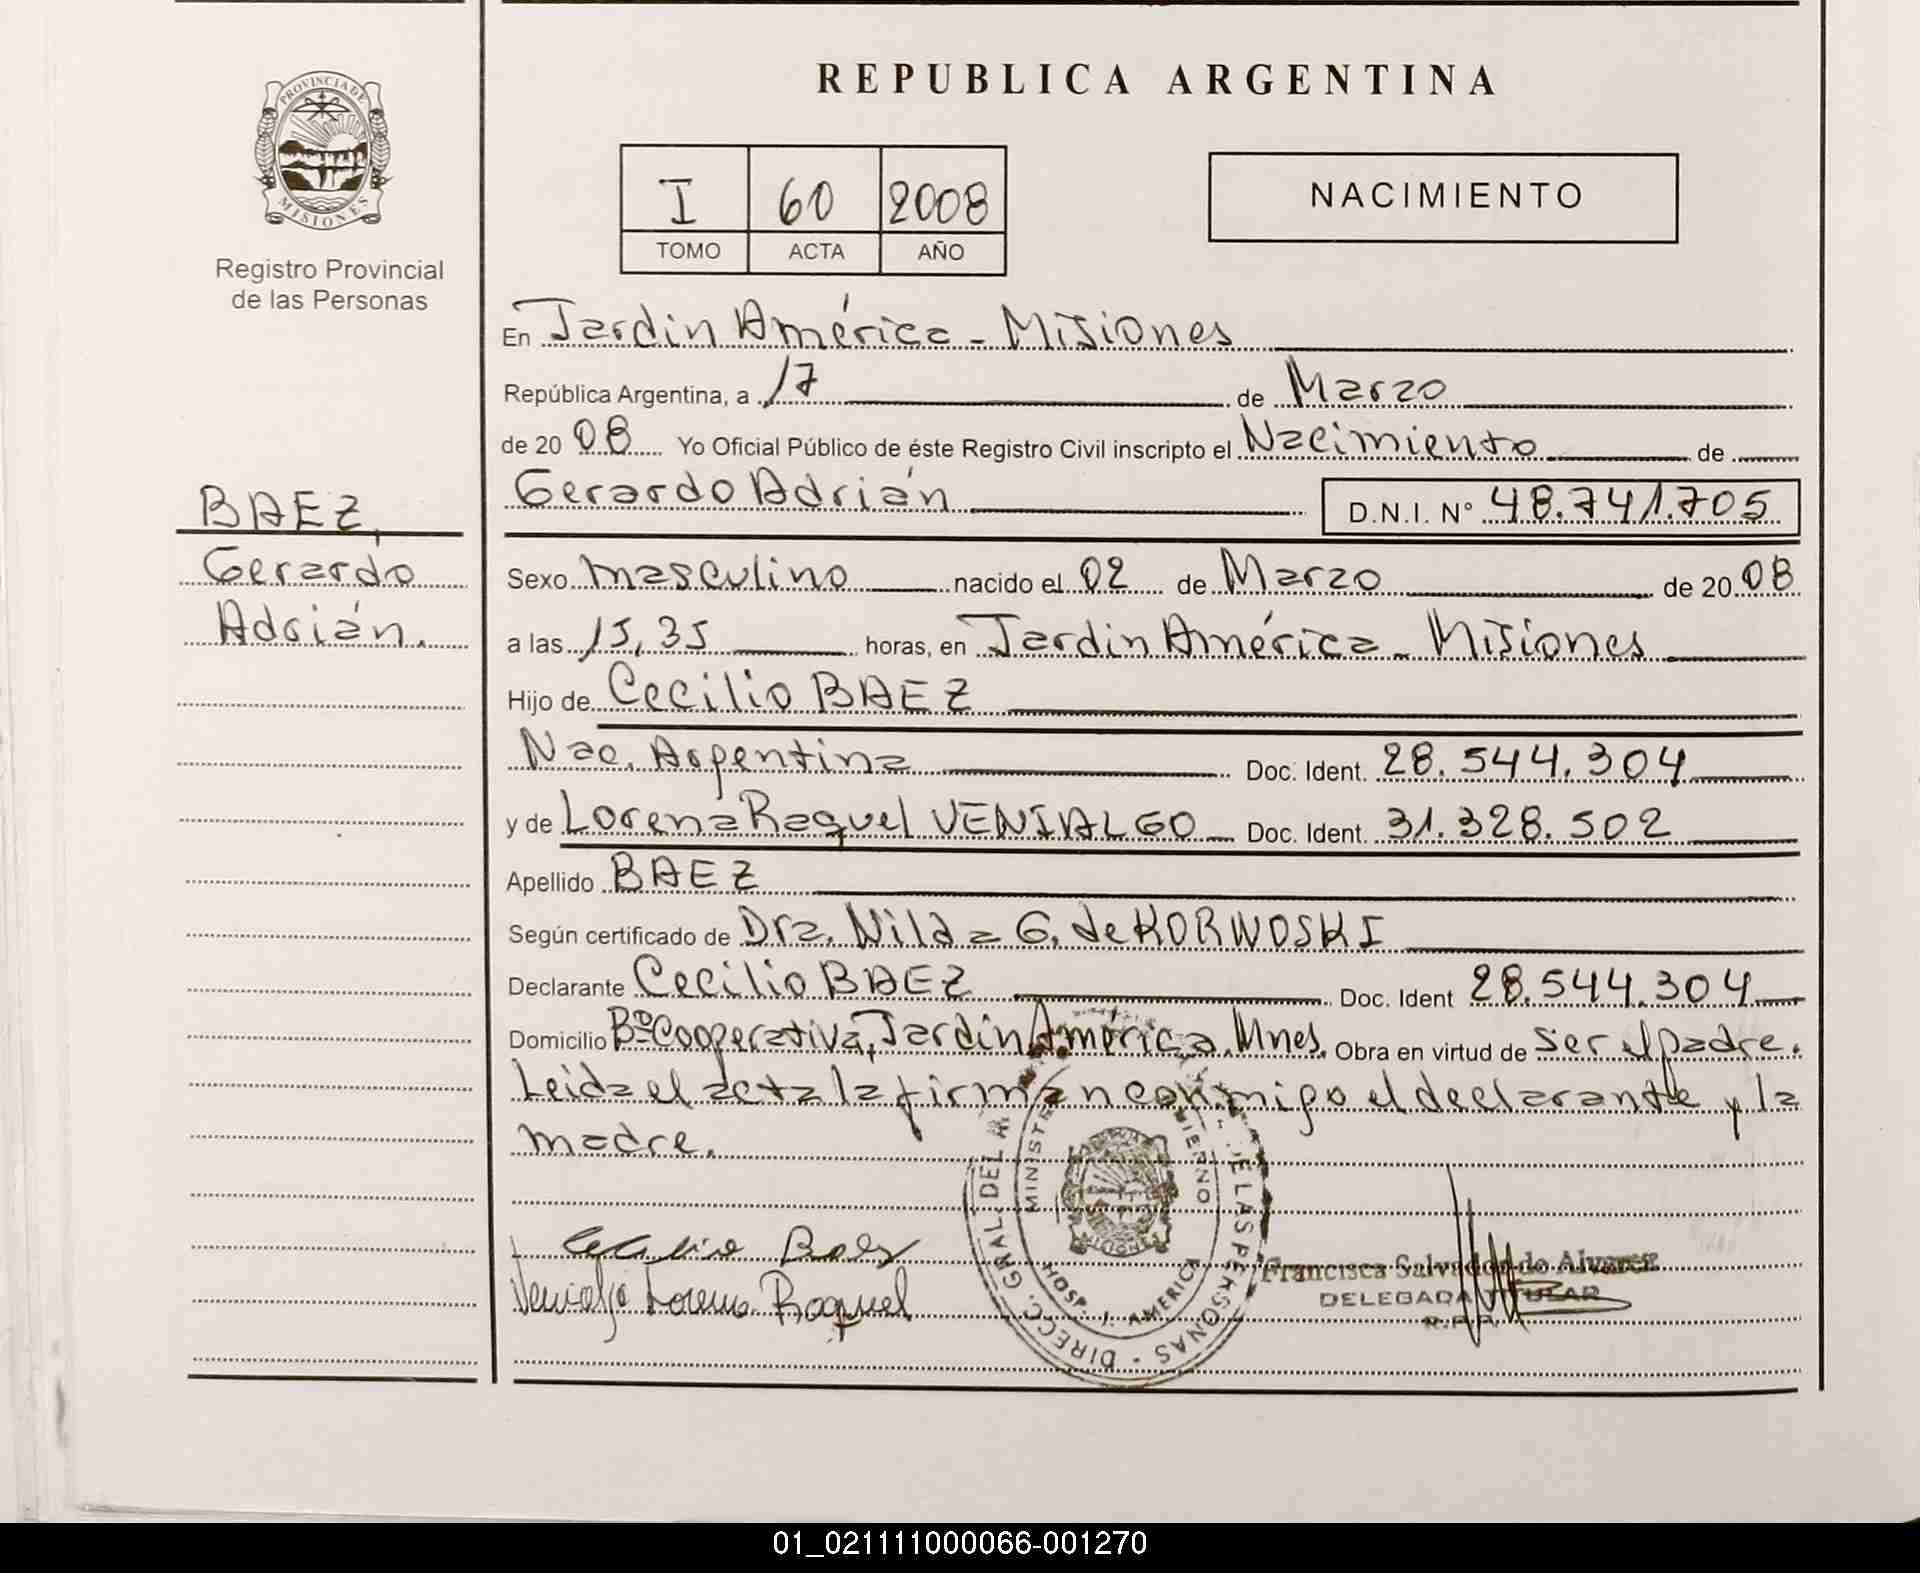 REPUBLICA ARGENTINA
PROVINCIA DE MISIONES
Registro Provincial
de las Personas
I 60 2008
TOMO ACTA AÑO
NACIMIENTO
BAEZ,
Gerardo
Adrián.
En Jardin América - Misiones
República Argentina, a 17 de Marzo
de 2008 Yo Oficial Público de éste Registro Civil inscripto el Nacimiento de
Gerardo Adrián D.N.I. N° 48.741.705
Sexo masculino nacido el 02 de Marzo de 2008
a las 15,35 horas, en Jardin América - Misiones
Hijo de Cecilio BAEZ
Nac. Argentina Doc. Ident. 28.544.304
y de Lorena Raquel VENIALGO Doc. Ident. 31.328.502
Apellido BAEZ
Según certificado de Dra. Nilda G. de KORWOSKI
Declarante Cecilio BAEZ Doc. Ident 28.544.304
Domicilio Bº Cooperativa, Jardin América, Mnes. Obra en virtud de ser el padre.
Leida el acta la firman conmigo el declarante y la
madre.
Cecilio Baez
Venialgo Lorena Raquel
DIRECC. GRAL. DE LAS PERSONAS
HOSP. J. AMERICA
MISIONES
Francisca Salvador de Alvarez
DELEGADA TITULAR
R.P.P.
01_021111000066-001270